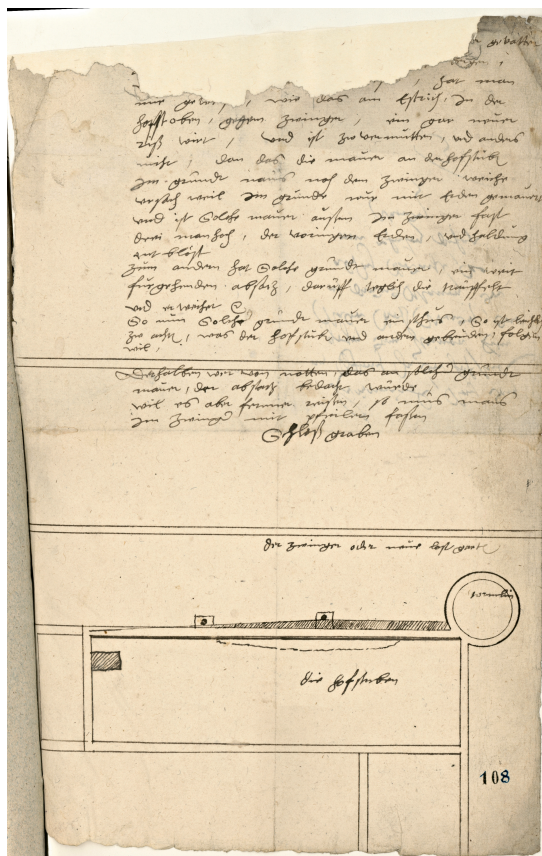 hat man
wie das am Estrich, In der
hofstoben, gegen Zwinger, ein gar neuer
riß wirt, und ist zuvermutten, und anders
nicht, dan das die mauer an der hofstub
Im grundt naus noch dem Zwinger weiche
ursach weil Im grundt nur mit Erden gemauert
und ist Solche mauer aussen Im Zwinger fast
drei manhoch, der vorigen Erden, und haldung
entblöst
Zum andern hat Solche grundt mauer, ein weit
furgehenden absatz, daruff teglich die
und erweichet
So nun Solche grundt mauer, So ist leicht
zu achten, was der hofstub und andern gebeuden, folgen
wil,
Derhalben wer von notten, das an solcher grundt
mauer, der absatz bedacht würde
wil es aber ferner reissen, so mus mans
Im Zwinger mit pfeilern fassen
Schloß graben
der zwinger oder neue lust gart
die hofstuben
108